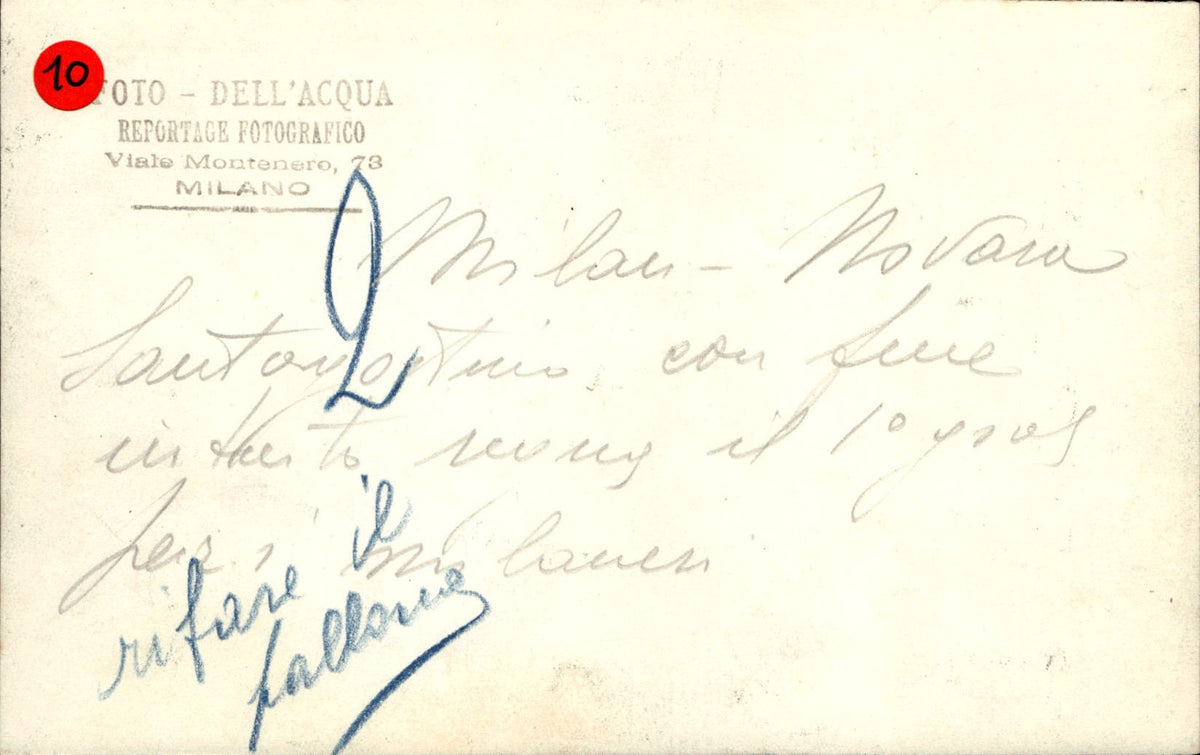 10
FOTO - DELL'ACQUA
REPORTAGE FOTOGRAFICO
Viale Montenero, 73
MILANO
2
Milan - Novara
Santagostino con fine
intuito segna il 1° goal
per i Milanesi
rifare il
pallone